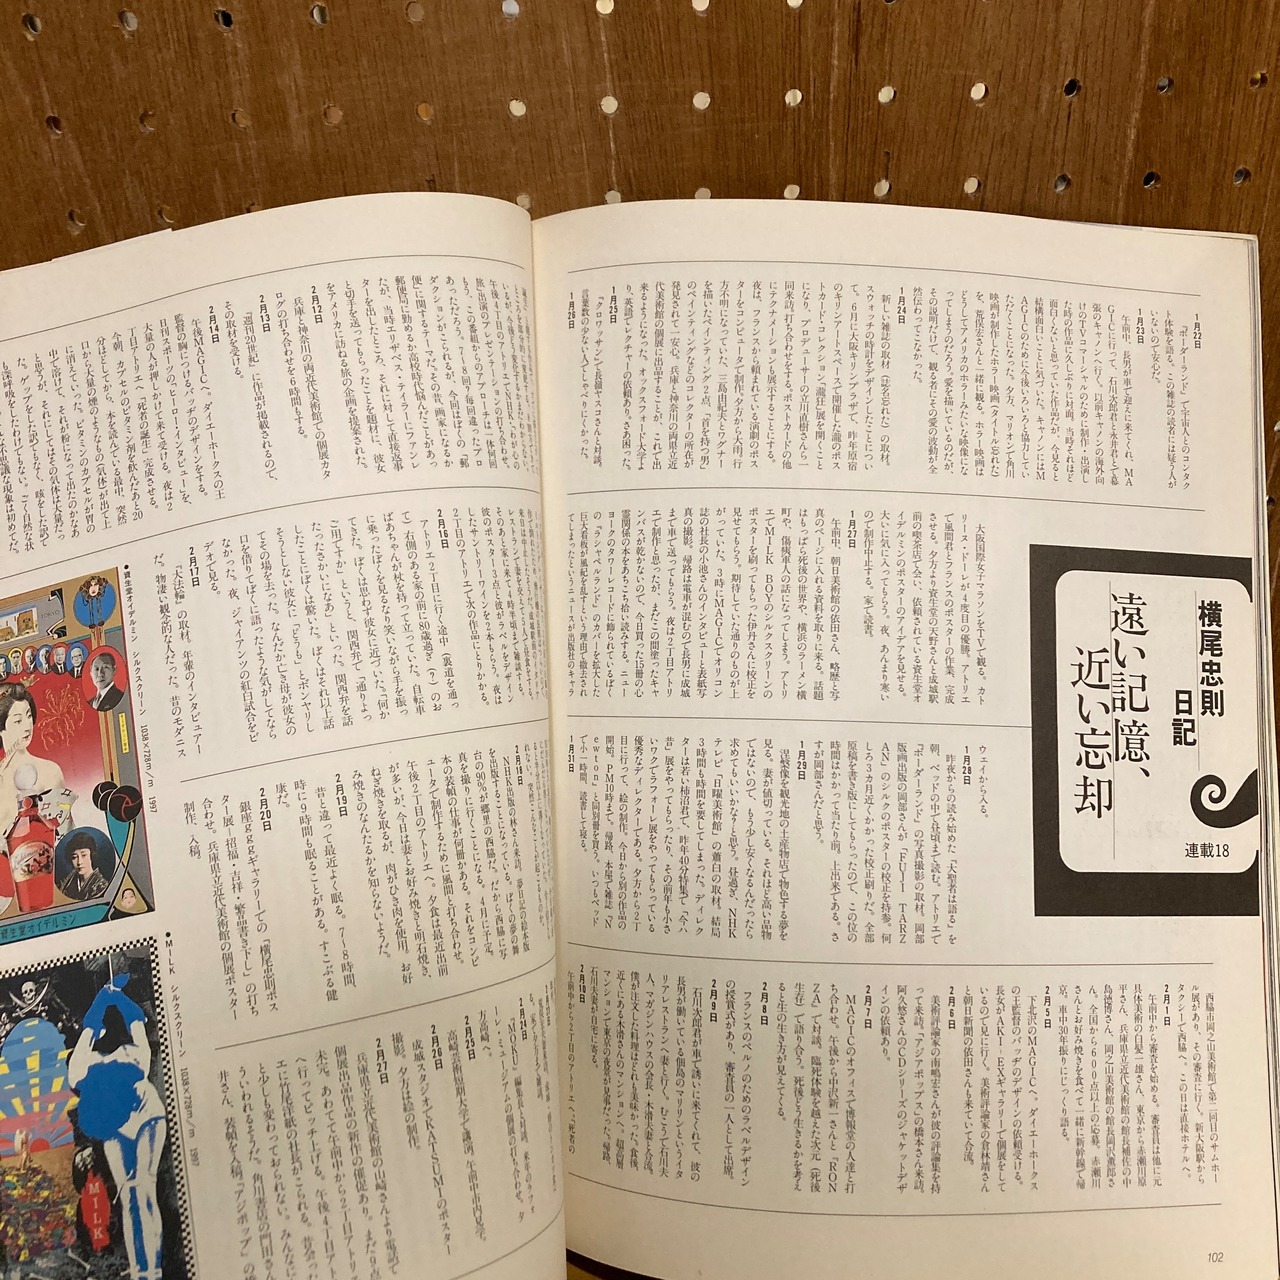 横尾忠則
日記
遠い記憶、
近い忘却
連載18
1月22日
『ボーダーランド』で宇宙人とのコンタク
ト体験を語る。この雑誌の読者には疑う人が
いないので安心だ。
1月23日
午前中、長男が車で迎えに来てくれ、MA
GICに行って、石川次郎君と永井君とで幕
張のキヤノンへ行く。以前キヤノンの海外向
けのTVコマーシャルのために制作・出演し
た時の作品に久しぶりに対面。当時それほど
面白くないと思っていた作品だが、今見ると
結構面白いことに気づいた。キヤノンにはM
AGICのために今後いろいろと協力してい
ただくことになった。夕方、マリオンで角川
映画が制作したホラー映画(タイトル忘れた)
を、荒俣宏さんと一緒に観る。ホラー映画は
どうしてアメリカのホラーみたいな映像にな
ってしまうのだろう。愛を描いているのだが、
その説明だけで、観る者にその愛の波動が全
然伝わってこなかった。
1月24日
新しい雑誌の取材(誌名忘れた)の取材。
スウォッチの時計をデザインしたことについ
て。6月に大阪キリンプラザで、昨年原宿
のキリンアートスペースで開催した滝のポス
トカード・コレクション〝瀧狂〟展を開くこと
になり、プロデューサーの立川直樹さんら一
同来訪。打ち合わせをする。ポストカードの他
にテクナメーションも展示することにする。
夜は、フランスから頼まれている演劇のポス
ターをコンピュータで制作。夕方から大雨。行
方不明になっていた、三島由紀夫とワグナー
を描いたペインティング2点、「首を持つ男」
のペインティングなどのコレクターの所在が
発見されて一安心。兵庫と神奈川の両県立近
代美術館の個展に出品することが、これで出
来るようになった。オックスフォード大学よ
り、英語でレクチャーの依頼あり。さあ困った。
1月25日
『クロワッサン』で長嶺ヤス子さんと対談。
言葉数の少ない人でしゃべりにくかった。
1月26日
大阪国際女子マラソンをTVで観る。カト
リーヌ・ドーレが4度目の優勝。アトリエ
で風間君とフランスのポスターの作業、完成
させる。夕方より資生堂の天野さんと成城駅
前の喫茶店で会い、依頼されている資生堂オ
イデルミンのポスターのアイデアを見せる。
大いに気に入ってもらう。夜、あんまり寒い
ので制作中止する。家で読書。
1月27日
午前中、朝日美術館の依田さん、略歴と写
真のページに入れる資料を取りに来る。話題
はもっぱら死後の世界や、横浜のラーメン横
町や、傷痍軍人の話になってしまう。アトリ
エでMILK BOYのシルクスクリーンの
ポスターを刷ってもらった伊丹さんに校正を
見せてもらう。期待していた通りのものが上
がっていた。3時にMAGICでオリコン
誌の社長の小池さんのインタビューと表紙写
真の撮影。帰路は電車が混むので長男に成城
まで車で送ってもらう。夜は2丁目アトリ
エで制作と思ったが、まだこの間塗ったキャ
ンバスが乾かないので、今日買った15冊の心
霊関係の本をあちこち拾い読みする。ニュー
ヨークのタワーレコードに飾られているぼく
の「ラシャベルランド」のカバーを拡大した
巨大看板が風紀を乱すという理由で撤去され
てしまったというニュースが出版社のキャラ
ウェイから入る。
1月28日
昨夜からの読み始めた『大聖者は語る』を
朝、ベッドの中で昼頃まで読む。アトリエで
『ボーダーランド』の写真撮影の取材。岡部
版画出版の岡部さんが「FUJI TARZ
AN」のシルクのポスターの校正を持参。何
しろ3カ月近くかかった校正刷りだ。全部
原稿を書き版にしてもらったので、この位の
時間はかかって当たり前。上出来である。さ
すが岡部さんだと思う。
1月29日
涅槃像を観光地の土産物店で物色する夢を
見る。妻が値切っている。それほど高い品物
ではないので、もう少し安くなるんだったら
求めてもいいかなと思う。昼過ぎ、NHK
テレビ「日曜美術館」の蕭白の取材。結局
3時間も時間を要してしまった。ディレク
ターは若い柿沼君で、昨年40分特集で「今ハ
昔」展をやってもらったり、その前年もふさ
いワクでラフォーレ展をやってもらっている
優秀なディレクターである。夕方から2丁
目に行って、絵の制作。今日から別の作品の
開始。PM10時まで。帰路、本屋で雑誌『N
ewton』と同別冊を買う。いつもベッド
で小一時間、読書して寝る。
1月31日
西脇市岡之山美術館で第二回目のサムホー
ル展があり、その審査に行く。新大阪駅から
タクシーで西脇へ。この日は直接ホテルへ。
2月1日
午前中から審査を始める。審査員は他に元
具体美術の白髪一雄さん、東京から赤瀬川原
平さん、兵庫県立近代美術館の館長補佐の中
島徳博さん、岡之山美術館の館長岡沢薫郎さ
ん。全国から600点以上の応募。赤瀬川
さんとお好み焼きを食べて一緒に新幹線で帰
京。車中30年振りにじっくり語る。
2月5日
下北沢のMAGICへ。ダイエーホークス
の王監督のバッヂのデザインの依頼受ける。
長女がAKI-EXギャラリーで個展をして
いるので見に行く。美術評論家の倉林靖さん
と朝日新聞の依田さんも来ていて合流。
美術評論家の南嶋宏さんが彼の評論集を持
って来訪。『アジアポップス』の橋本さん来訪。
阿久悠さんのCDシリーズのジャケットデザ
インの依頼あり。
2月7日
MAGICのオフィスで博報堂の人達と打
ち合わせ。午後から中沢新一さんと『RON
ZA』で対談。臨死体験を越えた次元(死後
生存)で語り合う。死後どう生きるかを考え
ると生の生き方が見えてくる。
2月8日
フランスのペルノのためのラベルデザイン
の授賞式があり、審査員の一人として出席。
2月9日
石川次郎君が車で誘いに来てくれて、彼の
長男が働いている個島のマリリンというイタ
リアレストランへ妻と行く。むこうで石川夫
人、マガジンハウスの会長・木滑夫妻と合流。
僕が注文した料理はどれも美味かった。食後、
近くにある木滑さんのマンションへ。超高層
マンションで東京の夜景が見事だった。帰路、
石川夫妻が自宅に寄る。
2月10日
午前中から2丁目のアトリエへ。「死者の
102
午後4丁目のアトリエで、NHK「わが心の
旅」出演のプレゼンテーションの打ち合わせ。
もう、この番組からのアプローチは一体何回
あっただろう。7~8回?毎回違ったプロ
ダクションがこられるが、今回はぼくの「郵
便」に関するテーマだ。その昔、画家になるか
郵便局に勤めるか高校時代悩んだことがあっ
たが、当時エリザベス・テイラーにファンレ
ターを出したところ、それに対して直接返事
と切手を送ってもらったことを題材に、彼女
をアメリカに訪ねる旅の企画を提案された。
2月12日
兵庫と神奈川の両近代美術館での個展カタ
ログの打ち合わせを6時間もする。
2月13日
『週刊20世紀』に作品が掲載されるので、
その取材を受ける。
2月14日
午後MAGICへ。ダイエーホークスの王
監督の胸につけるバッヂのデザインをする。
日刊スポーツの「ヒーロー・インタヴュー」を、
大量の人が押しかけて来て受ける。夜は2
丁目アトリエへ。「死者の誕生」完成させる。
今朝、カプセルのビタミン剤を飲んだあと20
分ほどしてから、本を読んでいる最中、突然
口から大量の煙のようなもの(気体)が出て上
に消えていった。ビタミンのカプセルが胃の
中で溶けて、それが粉になって出たのかなあ
と思うが、それにしてはその気体は大量だっ
た。ゲップをした訳でもなく、咳をした訳で
も深呼吸したわけでもない。ごく自然な状
2月16日
アトリエ2丁目に行く途中(裏道を通っ
て)右側のある家の前に80歳過ぎ(?)のお
ばあちゃんが杖を持って立っていた。自転車
に乗ったぼくを見るなり笑いながら手を振っ
てきた。ぼくは思わず彼女に近づいた。「何か
ご用ですか」というと、関西弁で「通りよっ
たったさかいになあ」といった。関西弁を話
したことにぼくは驚いた。ぼくはそれ以上話
そうとしない彼女に「どうも」とボンヤリし
てその場を去った。なんだか亡き母が彼女の
口を借りてぼくに語ったような気がしてなら
なかった。夜、ジャイアンツの紅白試合をビ
デオで見る。
2月17日
『大法輪』の取材。年輩のインタビュアー
だ。物凄い観念的な人だった。昔のモダニス
2月18日
NHK出版の林さん来訪。夢日記の絵本版
を出版することになる。ぼくの見る夢の舞
台の90%が郷里の西脇だ。だから西脇に写
真を撮りに行くことになる。4月に予定。
本の装幀の仕事が何冊かある。コンピ
ュータで制作するために風間と打ち合わせ。
午後2丁目のアトリエへ。夕食は最近出前
が多いが、今日は妻とお好み焼きと明石焼き、
ねぎ焼きを取るが、肉がひき肉を使用。お好
み焼きのなんたるかを知らないようだ。
2月19日
昔と違って最近よく眠る。7~8時間、
時に9時間も眠ることがある。すこぶる健
康だ。
2月20日
銀座gggギャラリーでの『横尾忠則ポス
ター展―招福・吉祥・繁昌書き下し』の打ち
合わせ。兵庫県立近代美術館の個展ポスター
制作、入稿。
2月24日
『MOKU』編集長と対談。来年のウフォ
レ・ミュージアムの個展の打ち合わせ。夕
方高崎へ。
2月25日
高崎芸術短期大学で講演。午前中市内見学。
2月26日
成城スタジオでKATSUMIのポスター
撮影。夕方は絵の制作。
2月27日
兵庫県立近代美術館の山崎さんより電話で
個展出品作品の新作の催促あり。まだ9点
未完。あわてて午前中から2丁目アトリ
へ行ってピッチを上げる。午後4丁目アト
エに竹尾洋紙の社長がこられる。昔会った
と少しも変わっておられない。みんなに
ういわれるそうだ。角川書店の門田さん
井さん、装幀を入稿。『アジポップ』の橋
●資生堂オイデルミン シルクスクリーン 1038×728m/m 1997
●MILK シルクスクリーン 1038×728m/m 1997
TOKYO
資生堂オイデルミン
MILK